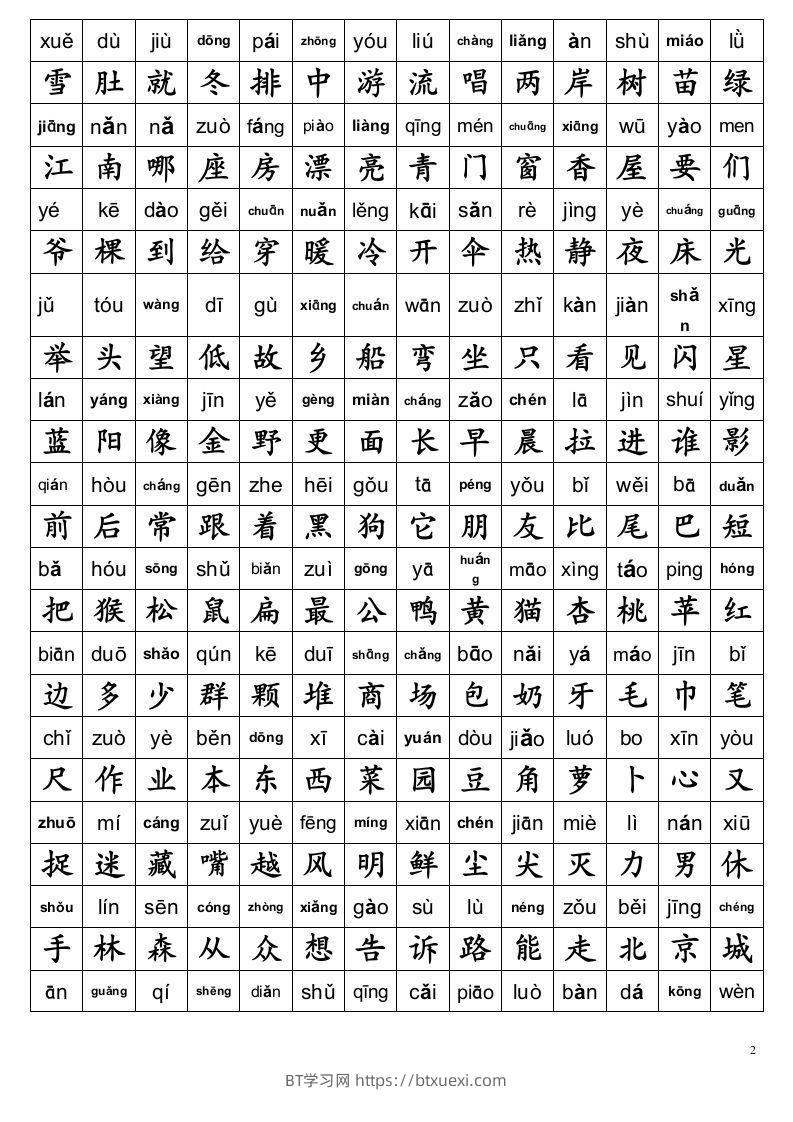 xuě dù jiù dōng pái zhōng yóu liú chàng liǎng àn shù miáo lǜ
雪 肚 就 冬 排 中 游 流 唱 两 岸 树 苗 绿
jiāng nǎn nǎ zuò fáng piào liàng qīng mén chuāng xiāng wū yào men
江 南 哪 座 房 漂 亮 青 门 窗 香 屋 要 们
yé kē dào gěi chuān nuǎn lěng kāi sǎn rè jìng yè chuáng guāng
爷 棵 到 给 穿 暖 冷 开 伞 热 静 夜 床 光
jǔ tóu wàng dī gù xiāng chuán wān zuò zhǐ kàn jiàn shǎn xīng
举 头 望 低 故 乡 船 弯 坐 只 看 见 闪 星
lán yáng xiàng jīn yě gèng miàn cháng zǎo chén lā jìn shuí yǐng
蓝 阳 像 金 野 更 面 长 早 晨 拉 进 谁 影
qián hòu cháng gēn zhe hēi gǒu tā péng yǒu bǐ wěi bā duǎn
前 后 常 跟 着 黑 狗 它 朋 友 比 尾 巴 短
bǎ hóu sōng shǔ biǎn zuì gōng yā huáng māo xìng táo ping hóng
把 猴 松 鼠 扁 最 公 鸭 黄 猫 杏 桃 苹 红
biān duō shǎo qún kē duī shāng chǎng bāo nǎi yá máo jīn bǐ
边 多 少 群 颗 堆 商 场 包 奶 牙 毛 巾 笔
chǐ zuò yè běn dōng xī cài yuán dòu jiǎo luó bo xīn yòu
尺 作 业 本 东 西 菜 园 豆 角 萝 卜 心 又
zhuō mí cáng zuǐ yuè fēng míng xiān chén jiān miè lì nán xiū
捉 迷 藏 嘴 越 风 明 鲜 尘 尖 灭 力 男 休
shǒu lín sēn cóng zhòng xiǎng gào sù lù néng zǒu běi jīng chéng
手 林 森 从 众 想 告 诉 路 能 走 北 京 城
ān guǎng qí shēng diǎn shǔ qīng cǎi piāo luò bàn dá kōng wèn
2
BT学习网 https://btxuexi.com